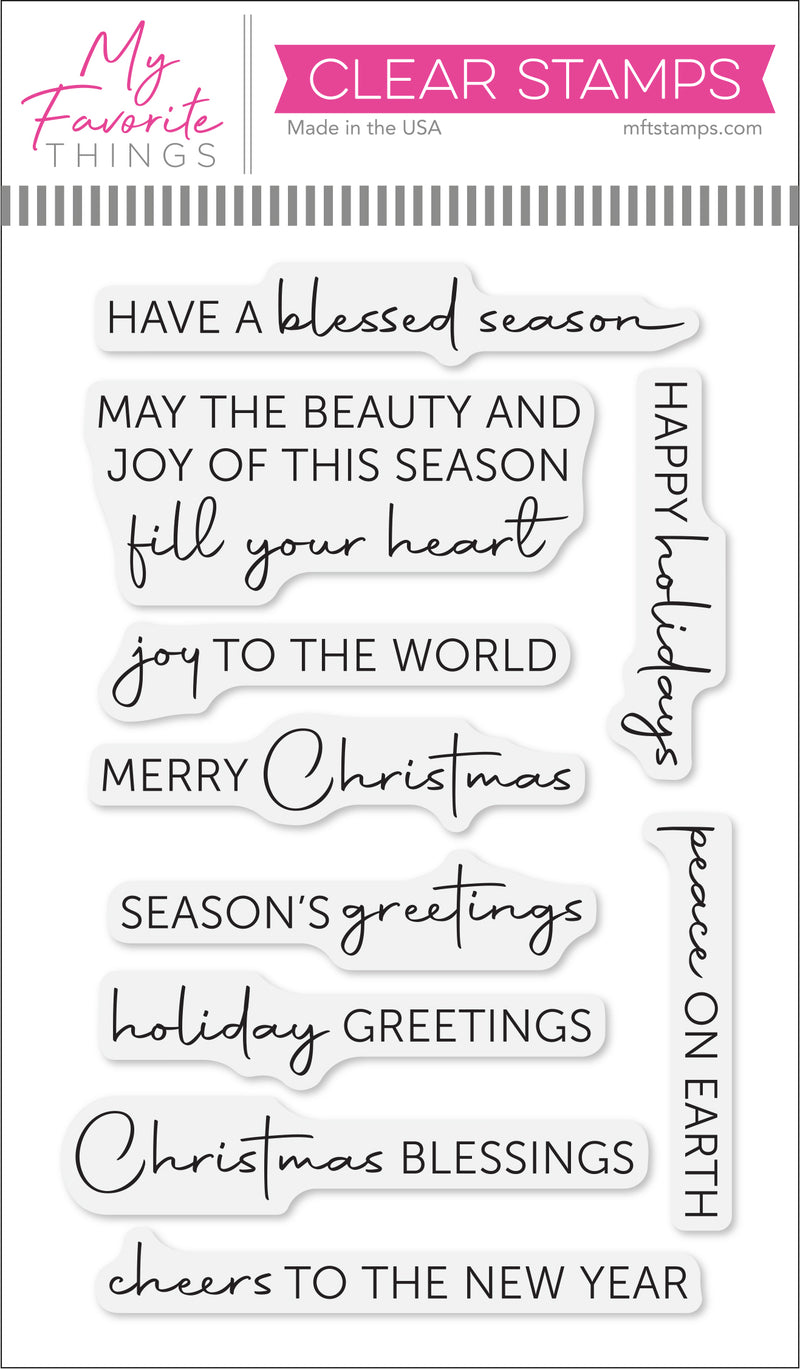 My
Favorite
THINGS
CLEAR STAMPS
Made in the USA
mftstamps.com
HAVE A blessed season
MAY THE BEAUTY AND
JOY OF THIS SEASON
fill your heart
HAPPY holidays
joy TO THE WORLD
MERRY Christmas
SEASON'S greetings
peace ON EARTH
holiday GREETINGS
Christmas BLESSINGS
cheers TO THE NEW YEAR